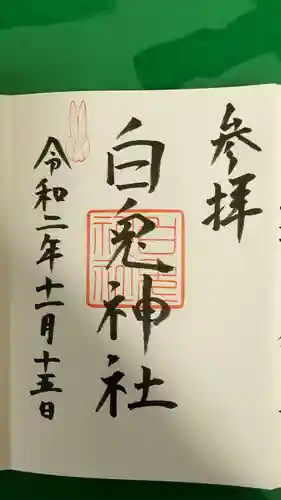 参拝
白兔神社
令和二年十一月十五日